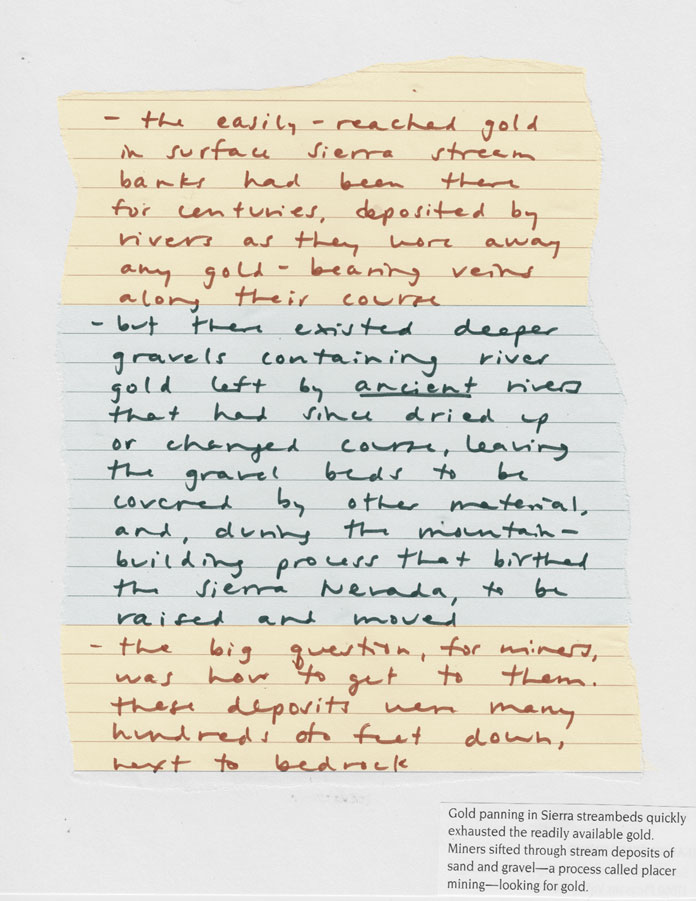 - the easily-reached gold
in surface Sierra stream
banks had been there
for centuries, deposited by
rivers as they wore away
any gold-bearing veins
along their course
- but there existed deeper
gravels containing river
gold left by ancient rivers
that had since dried up
or changed course, leaving
the gravel beds to be
covered by other material,
and, during the mountain-
building process that birthed
the Sierra Nevada, to be
raised and moved
- the big question, for miners,
was how to get to them.
these deposits were many
hundreds of feet down,
next to bedrock
Gold panning in Sierra streambeds quickly
exhausted the readily available gold.
Miners sifted through stream deposits of
sand and gravel—a process called placer
mining—looking for gold.